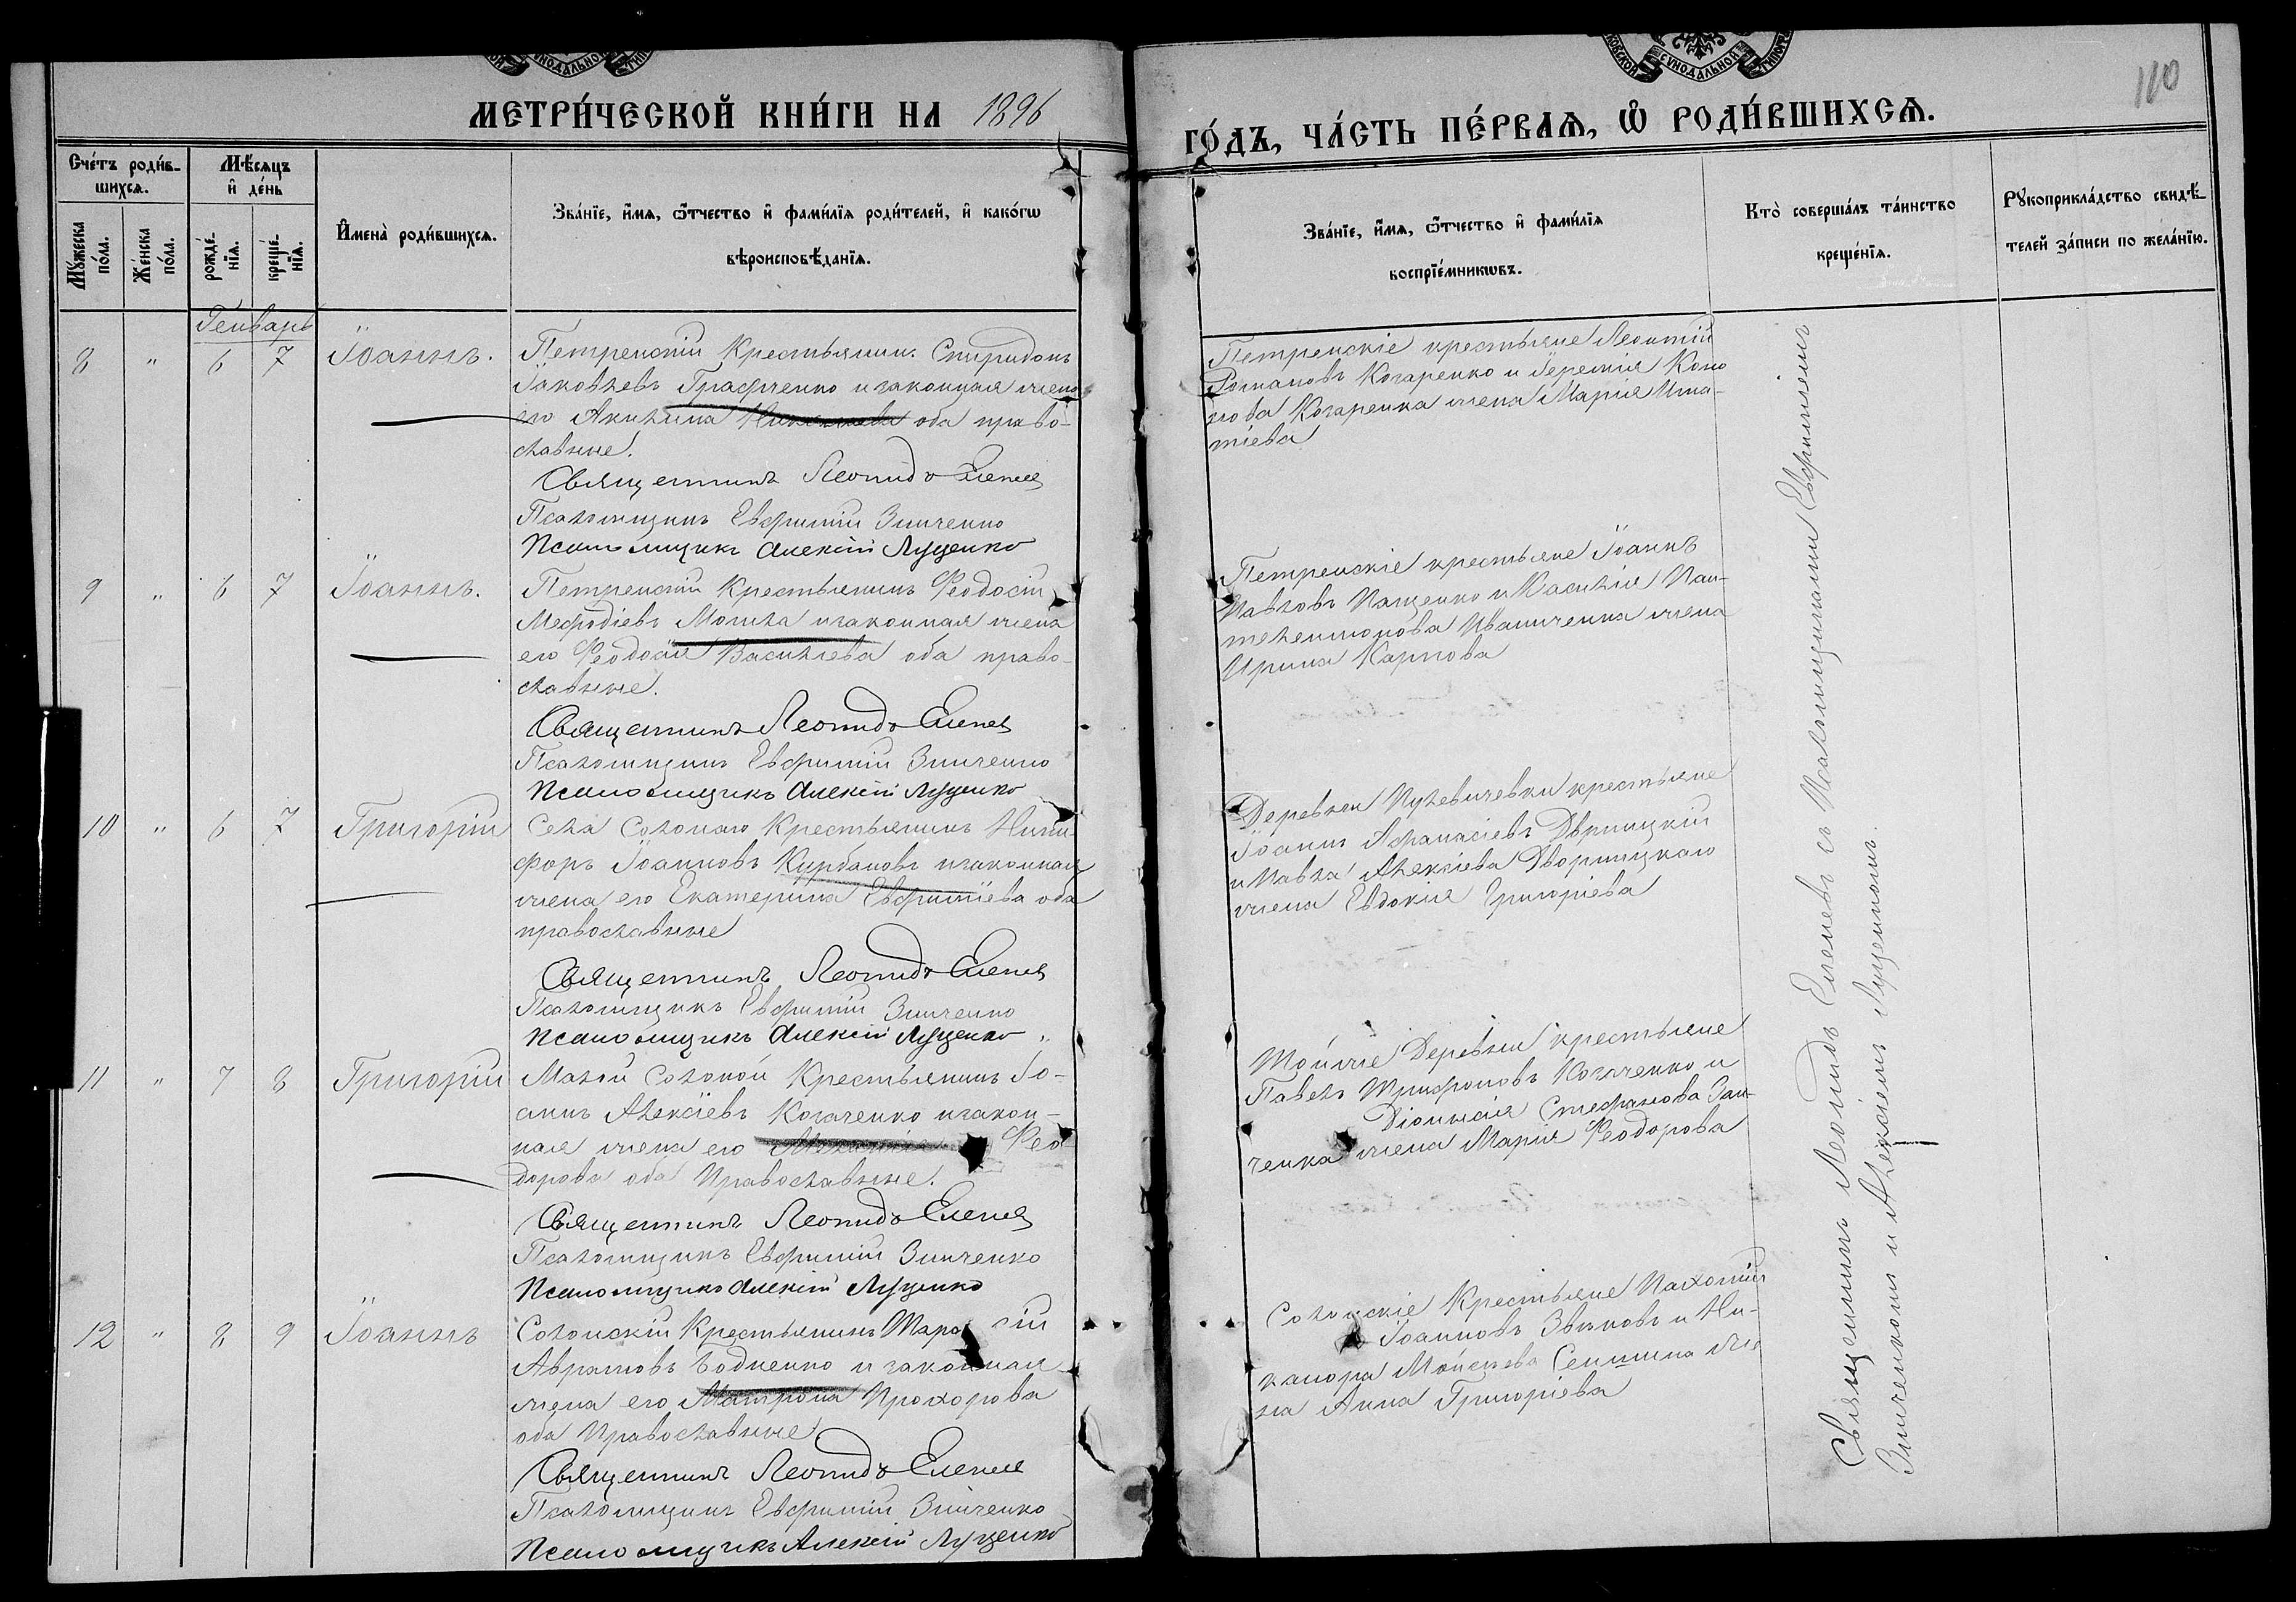 МЕТРИ́ЧЕСКОЙ КНИ́ГИ НА 1896
ГО́ДЪ, ЧА́СТЬ ПЕ́РВАѦ, Ѡ҆ РОДИ́ВШИХСѦ.
110
Сче́тъ роди́в-
шихсѧ.
Мꙋ́жеска по́ла.
Же́нска по́ла.
Мѣ́сѧцъ
и҆ де́нь
рожде́-
нїѧ.
креще́-
нїѧ.
И҆мена̀ роди́вшихсѧ.
Зва́нїе, и҆́мѧ, ѻ҆́тчество и҆ фами́лїѧ роди́телей, и҆ како́гѡ
вѣроисповѣ́данїѧ.
Зва́нїе, и҆́мѧ, ѻ҆́тчество и҆ фами́лїѧ
воспрїе́мникѡвъ.
Кто̀ соверша́лъ та́инство
креще́нїѧ.
Рꙋкоприкла́дство свидѣ́-
телей за́писи по жела́нїю.
Генварь
8 " 6 7 Іоаннъ.
Петренскій Крестьянин. Спиридонъ
Іаковлевъ Трафченко и законная жена
его Акилина оба право-
славные.
Священникъ Леонидъ Еленев
Псаломщикъ Евфимій Зинченко
Псаломщикъ Алексій Луценко
Петренскіе крестьяне Леонтій
Романовъ Когаренко и Іеремія Коно
нова Когаренка жена Марія Игна-
тіева
9 " 6 7 Іоаннъ.
Петренскій Крестьянинъ Феодосій
Мефодіевъ Могила и законная жена
его Феодосія Василіева оба право-
славные.
Священникъ Леонидъ Еленев
Псаломщикъ Евфимій Зинченко
Псаломщикъ Алексій Луценко
Петренскіе крестьяне Іоаннъ
Павловъ Пащенко и Василія Пан-
телеимонова Иваниченка жена
Ирина Карпова
10 " 6 7 Григорій
Села Солонаго Крестьянинъ Ники-
форъ Іоанновъ Курбановъ и законная
жена его Екатерина Евфиміева оба
православные
Священникъ Леонидъ Еленев
Псаломщикъ Евфимій Зинченко
Псаломщикъ Алексій Луценко
Деревни крестьяне
Іоаннъ Афанасіевъ
и Павла Алексіева Дворницкаго
жена Евдокія Григоріева
11 " 7 8 Григорій
Малой Солоной Крестьянинъ Іо-
аннъ Алексіевъ Когаченко и закон-
ная жена его Фео
дорова оба Православные.
Священникъ Леонидъ Еленев
Псаломщикъ Евфимій Зинченко
Псаломщикъ Алексій Луценко
Той же Деревни крестьяне
Павелъ Трифоновъ Когаченко и
Діонисія Стефанова Зин-
ченка жена Марія Феодорова
12 " 8 9 Іоаннъ
Солонскій Крестьянинъ Тарасій
Аврамовъ Бодненко и законная
жена его Матрона Прохорова
оба Православные
Священникъ Леонидъ Еленев
Псаломщикъ Евфимій Зинченко
Псаломщикъ Алексій Луценко
Солонскіе Крестьяне Пахомій
Іоанновъ Звековъ и Ни-
канора Моисеева Сенкина же
на Анна Григоріева
Священникъ Леонидъ Еленевъ съ Псаломщиками Евфиміемъ
Зинченкомъ и Алексіемъ Луценкомъ.